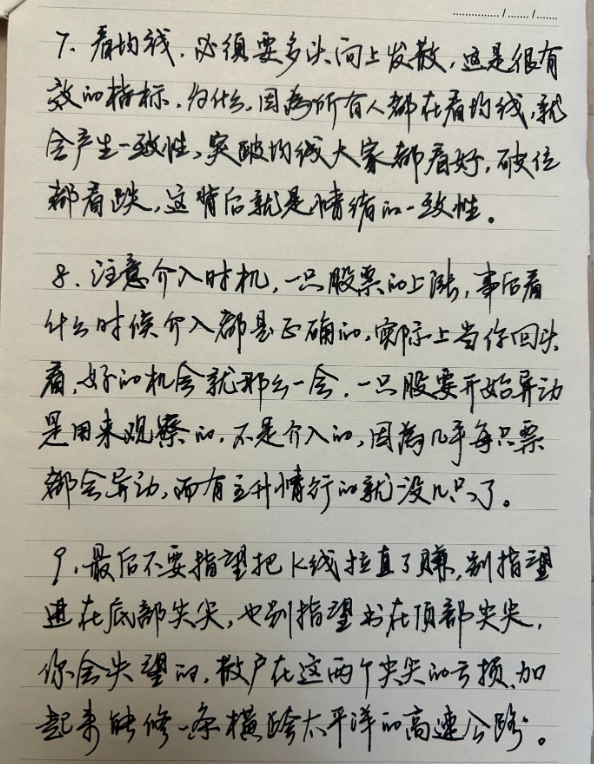 7、看均线,必须要多头向上发散,这是很有
效的指标,为什么,因为所有人都在看均线,就
会产生一致性,突破均线大家都看好,破位
都看跌,这背后就是情绪的一致性。
8、注意介入时机,一只股票的上涨,事后看
什么时候介入都是正确的,实际上当你回头
看,好的机会就那么一会,一只股票开始异动
是用来观察的,不是介入的,因为几乎每只票
都会异动,而有主升情行的就没几只了。
9、最后不要指望把K线拉直了赚,别指望
进在底部尖尖,也别指望出在顶部尖尖,
你会失望的,散户在这两个尖尖的亏损,加
起来能修一条横跨太平洋的高速公路。